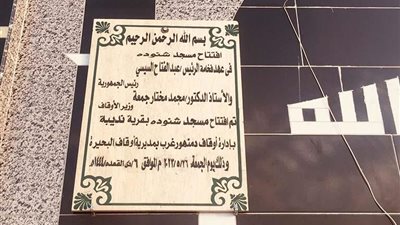 بسم الله الرحمن الرحيم
افتتاح مسجد شنوده
فى عهد فخامة الرئيس/عبد الفتاح السيسي
رئيس الجمهورية
والأستاذ الدكتور/محمد مختار جمعة
وزير الأوقاف
تم افتتاح مسجد شنوده بقرية نديبة
بإدارة أوقاف دمنهور غرب بمديرية أوقاف البحيرة
وذلك يوم الجمعة ٢٠٢٣/٥/٢٦م الموافق ٦/ذى القعدة/١٤٤٤هـ
الله